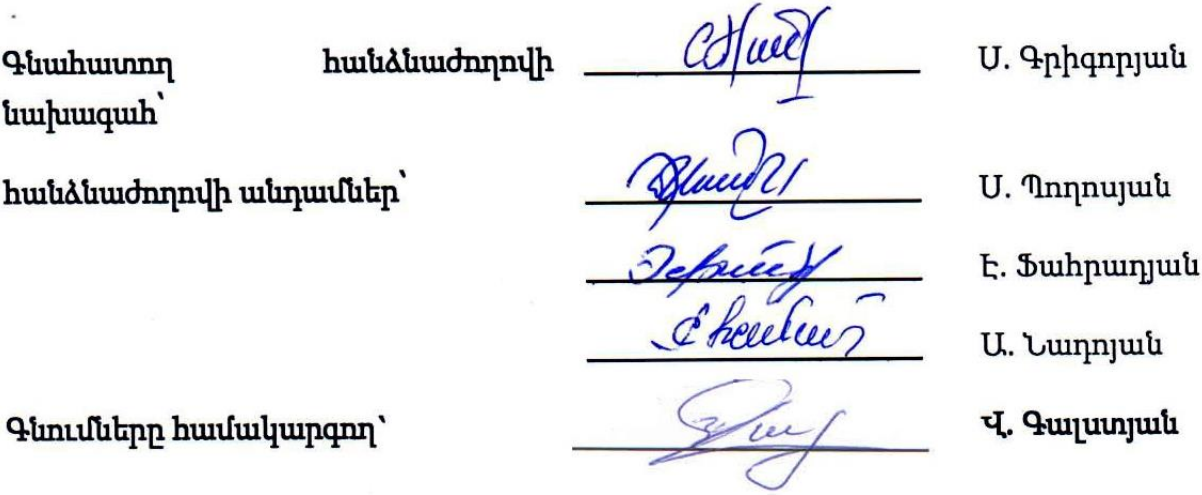 Գնահատող հանձնաժողովի Ս. Գրիգորյան
նախագահ՝
հանձնաժողովի անդամներ՝ Ս. Պողոսյան
Է. Ֆահրադյան
Ա. Նադոյան
Գնումները համակարգող՝ Վ. Գալստյան